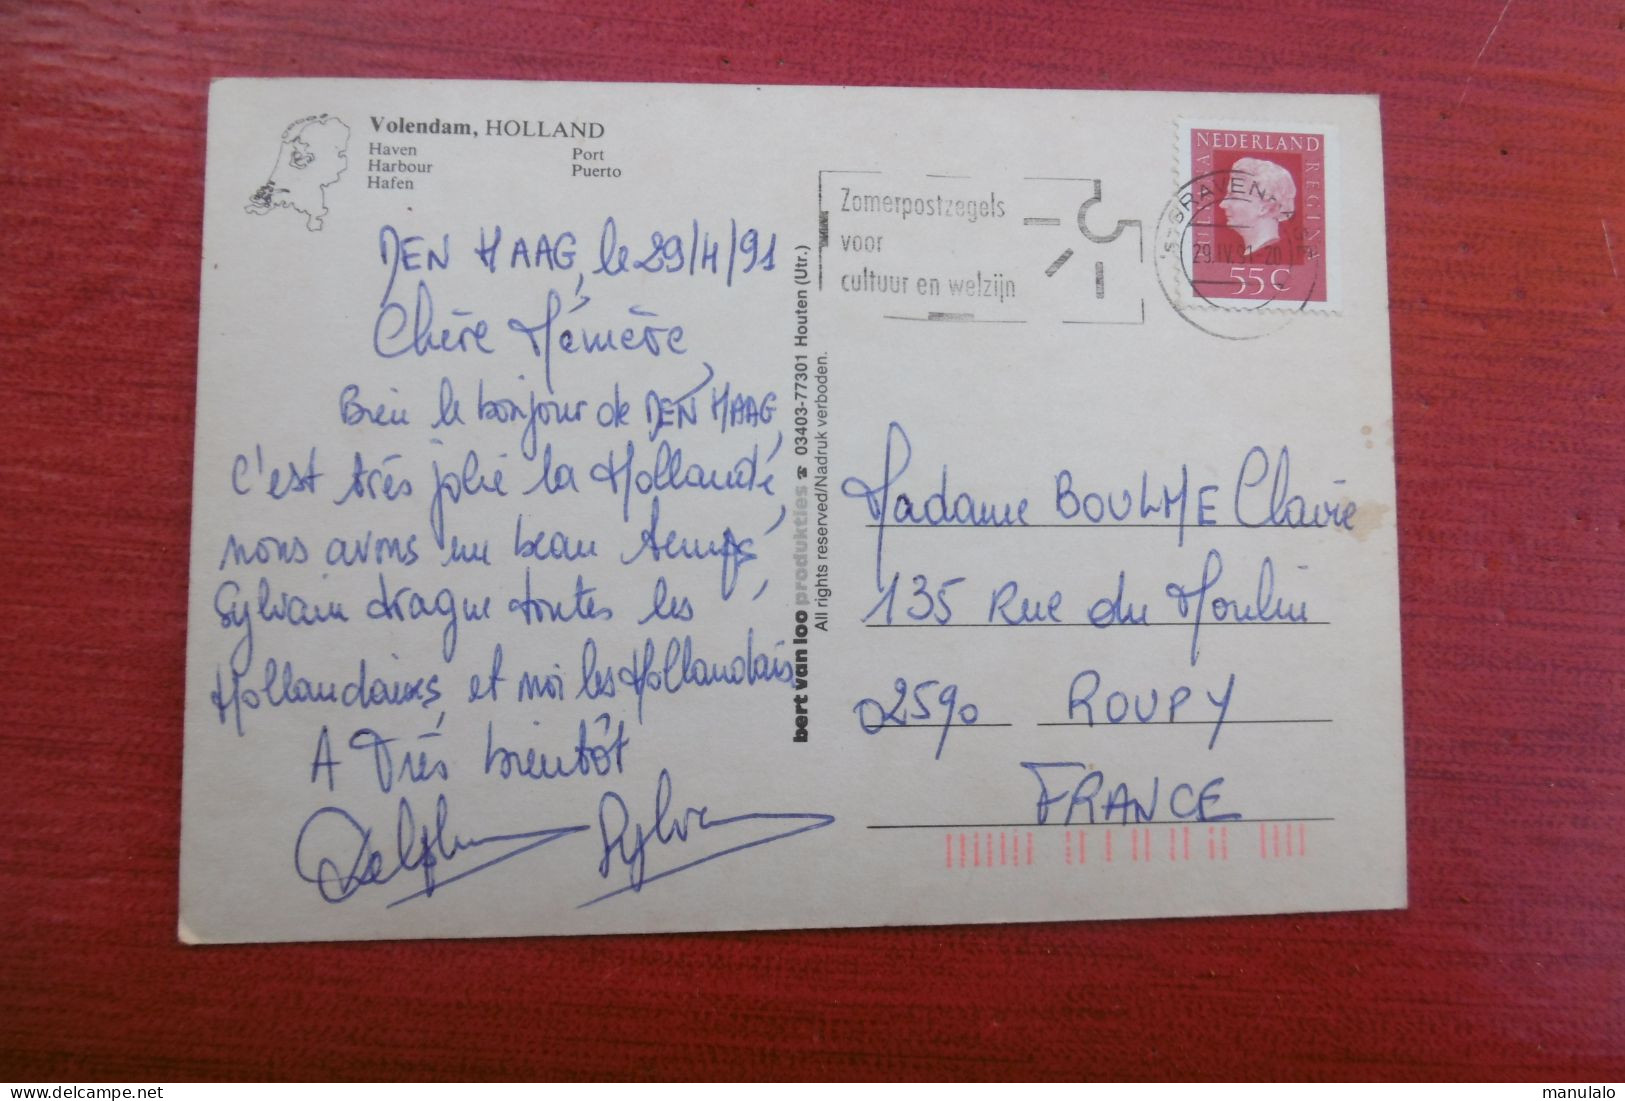 Volendam, HOLLAND
Haven
Harbour
Hafen
Port
Puerto
DEN HAAG, le 29/4/91
Chère Mémère,
Bien le bonjour de DEN HAAG,
c'est très jolie la Hollande,
nous avons un beau temps,
Sylvain drague toutes les
Hollandaises, et moi les Hollandais.
A Très bientôt
Delphine
Sylvain
bert van loo produkties ☎ 03403-77301 Houten (Utr.)
All rights reserved/Nadruk verboden.
Zomerpostzegels
voor
cultuur en welzijn
29.IV.91.20
NEDERLAND
JULIANA REGINA
55 C
Madame BOULME Claire
135 Rue du Moulin
02590 ROUPY
FRANCE
manulalo